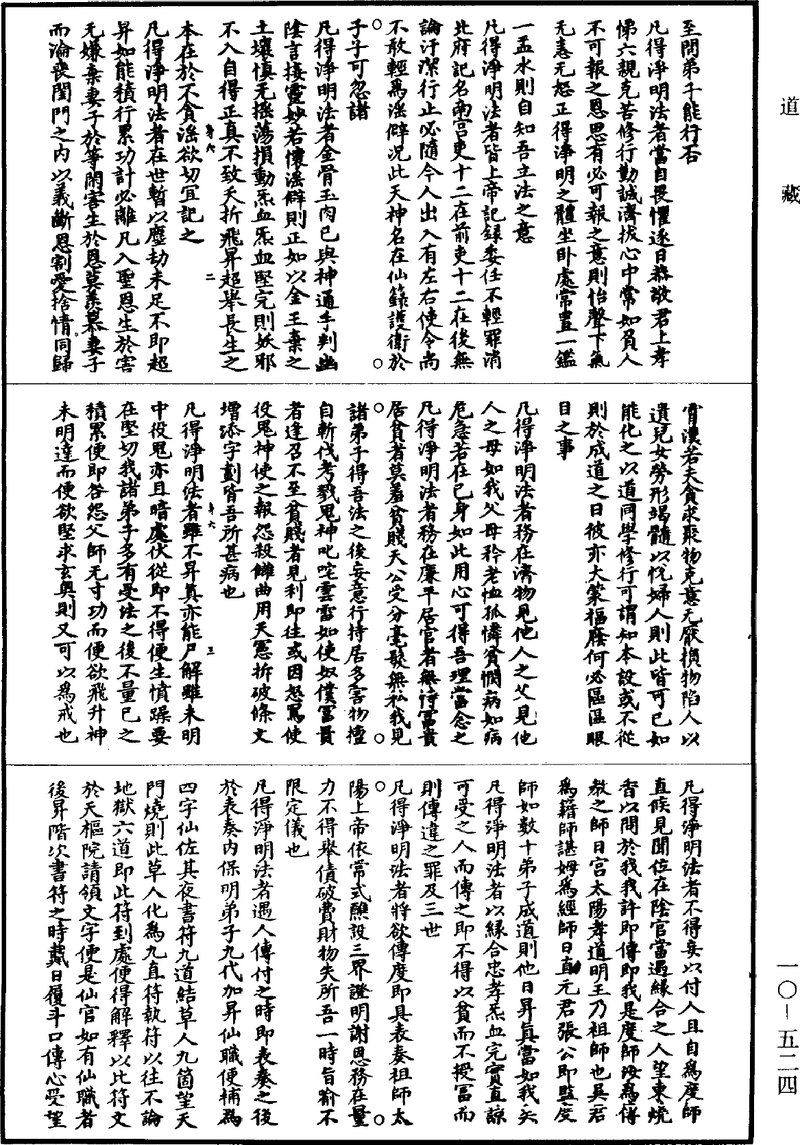 道藏
至問弟子能行否
凡得淨明法者當自畏懼逐日恭敬君上孝
悌六親克苦修行勤誠濟拔心中常如負人
不可報之恩思有必可報之意則怡聲下氣
无恚无怒正得淨明之體坐卧處常置一鑑
一盂水則自知吾立法之意
凡得淨明法者皆上帝記録委任不輕罪消
北府記名南宮吏十二在前吏十二在後無
論汙潔行止必隨令人出入有左右使令尚
不敢輕爲淫僻况此天神名在仙籙護衛於
子子可忽諸
凡得淨明法者金骨玉肉已與神通手判幽
陰言接靈妙若懷淫僻則正如以金玉棄之
土壤慎无摇蕩損動炁血炁血堅完則妖邪
不入自得正真不致夭折飛昇超舉長生之
本在於不貪淫欲切宜記之
凡得淨明法者在世暫以塵劫未足不即超
昇如能積行累功計必離凡入聖恩生於害
无嫌棄妻子於等閑害生於恩莫羨慕妻子
而淪喪閨門之内以義斷恩割愛捨情同歸
霄漢若夫貪求聚物克意无厭損物陷人以
遺兒女勞形竭髓以悦婦人則此皆可已如
能化之以道同學修行可謂知本設或不從
則於成道之日彼亦大蒙福廕何必區區眼
目之事
凡得淨明法者務在濟物見他人之父見他
人之母如我父母矜老恤孤憐貧憫病如病
危急若在己身如此用心可得吾理當念之
凡得淨明法者務在廉平居官者無恃富貴
居貧者莫羞貧賤天公受分毫髮無私我見
諸弟子得吾法之後妄意行持居多害物擅
自斬伐考戮鬼神叱咤雲雷如使奴僕富貴
者逢召不至貧賤者見利即往或因怒罵使
役鬼神使之報怨殺讎曲用天憲拆破條文
增添字劃皆吾所甚病也
凡得淨明法者雖不昇真亦能尸解雖未明
中役鬼亦且暗處伏從即不得便生憤躁要
在堅切我諸弟子多有受法之後不量己之
積累便即咎怨父師无寸功而便欲飛升神
未明達而便欲堅求玄奧則又可以爲戒也
凡得淨明法者不得妄以付人且自爲度師
直候見聞位在陰官當遇緣合之人望東燒
香以問於我我許即傳即我是度師汝爲傳
教之師日宫太陽孝道明王乃祖師也吴君
爲籍師諶姆爲經師日直元君張公即監度
師如數十弟子成道則他日昇真當如我矣
凡得淨明法者以緣合忠孝炁血完實直諒
可受之人而傳之即不得以貧而不授富而
則傳違之罪及三世
凡得淨明法者將欲傳度即具表奏祖師太
陽上帝依常式醮設三界證明謝恩務在量
力不得舉債破費財物失所吾一時旨諭不
限定儀也
凡得淨明法者遇人傳付之時即表奏之後
於表奏内保明弟子九代加昇仙職便補爲
四字仙佐其夜書符九道結草人九箇望天
門燒則此草人化爲九直符執符以往不論
地獄六道即此符到處便得解釋以比符文
於天樞院請領文字便是仙官如有仙職者
後昇階次書符之時戴日履斗口傳心受望
一〇－五二四